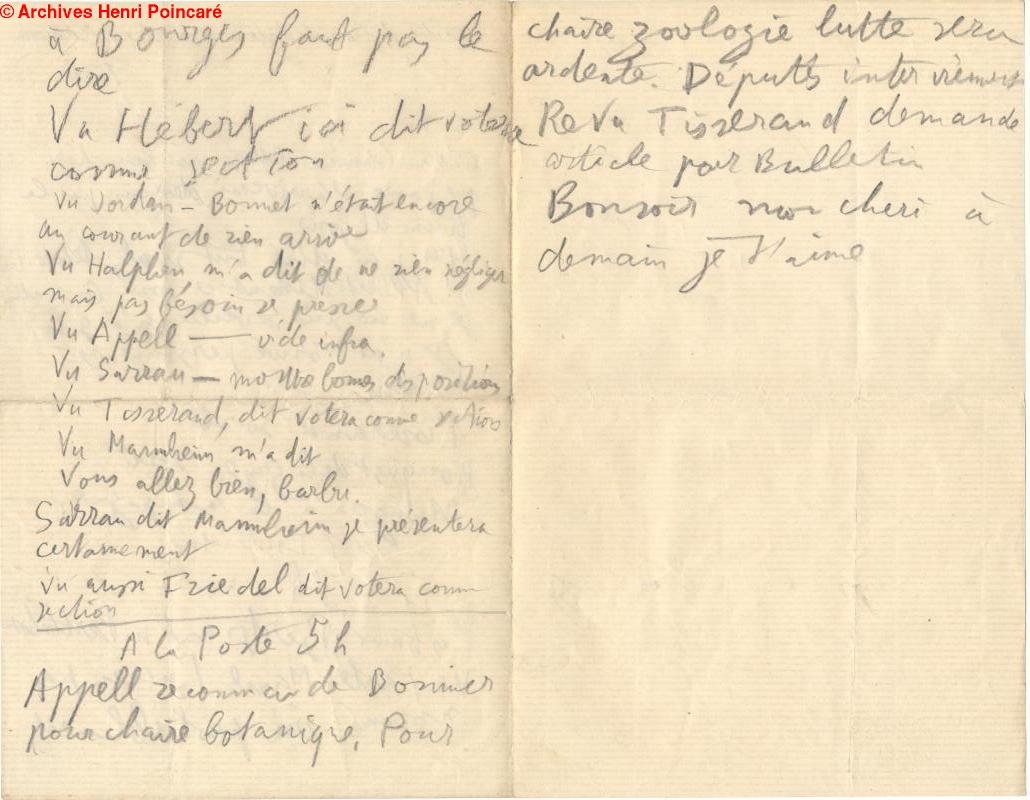 © Archives Henri Poincaré
à Bourges faut pas le
dire
Vu Hébert ici dit votera
comme section
Vu Jordan – Bonnet n'était encore
au courant de rien arrivé
Vu Halphen m'a dit de ne rien négliger
mais pas besoin se presser
Vu Appell —— vide infra.
Vu Sarrau — montre bonnes dispositions
Vu Tisserand, dit votera comme section
Vu Mannheim m'a dit
Vous allez bien, barbu.
Sarrau dit Mannheim se présentera
certainement
Vu aussi Friedel dit votera comme
section
A la Poste 5h
Appell recommande Bonnier
pour chaire botanique, Pour
chaire zoologie lutte sera
ardente. Députés interviennent
Revu Tisserand demande
article pour Bulletin
Bonsoir mon cheri à
demain je t'aime